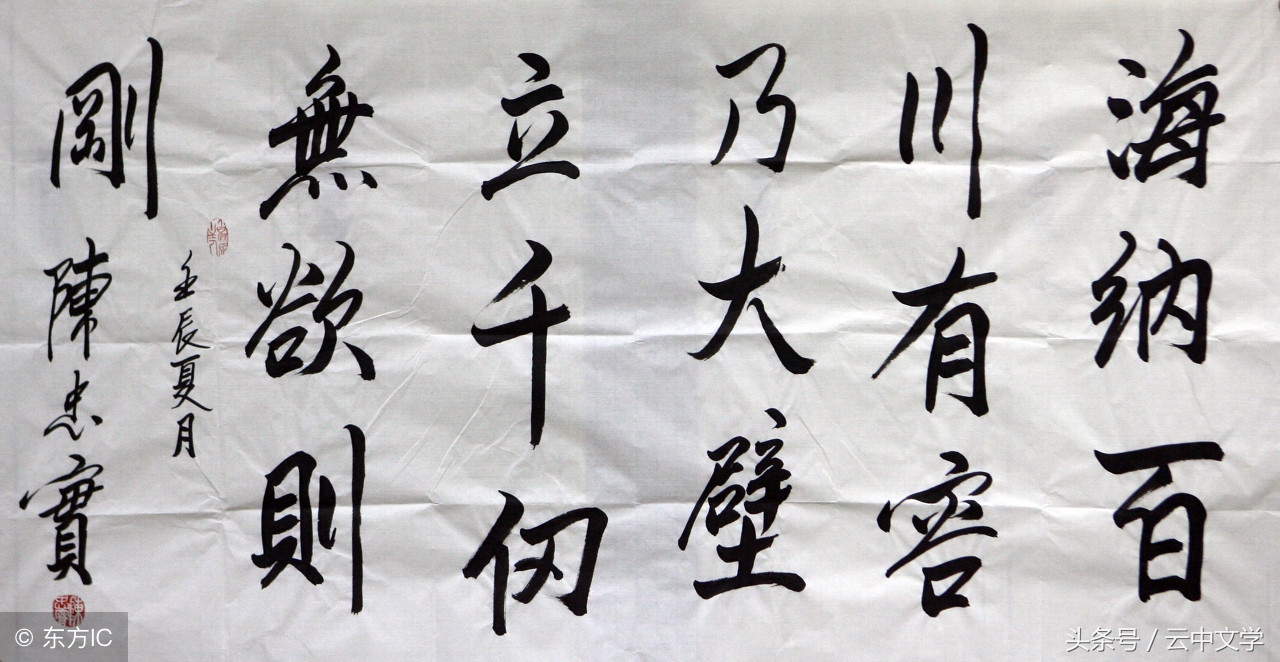 海納百
川有容
乃大壁
立千仞
無欲則
剛
壬辰夏月
陳忠實
© 东方IC
头条号 / 云中文学